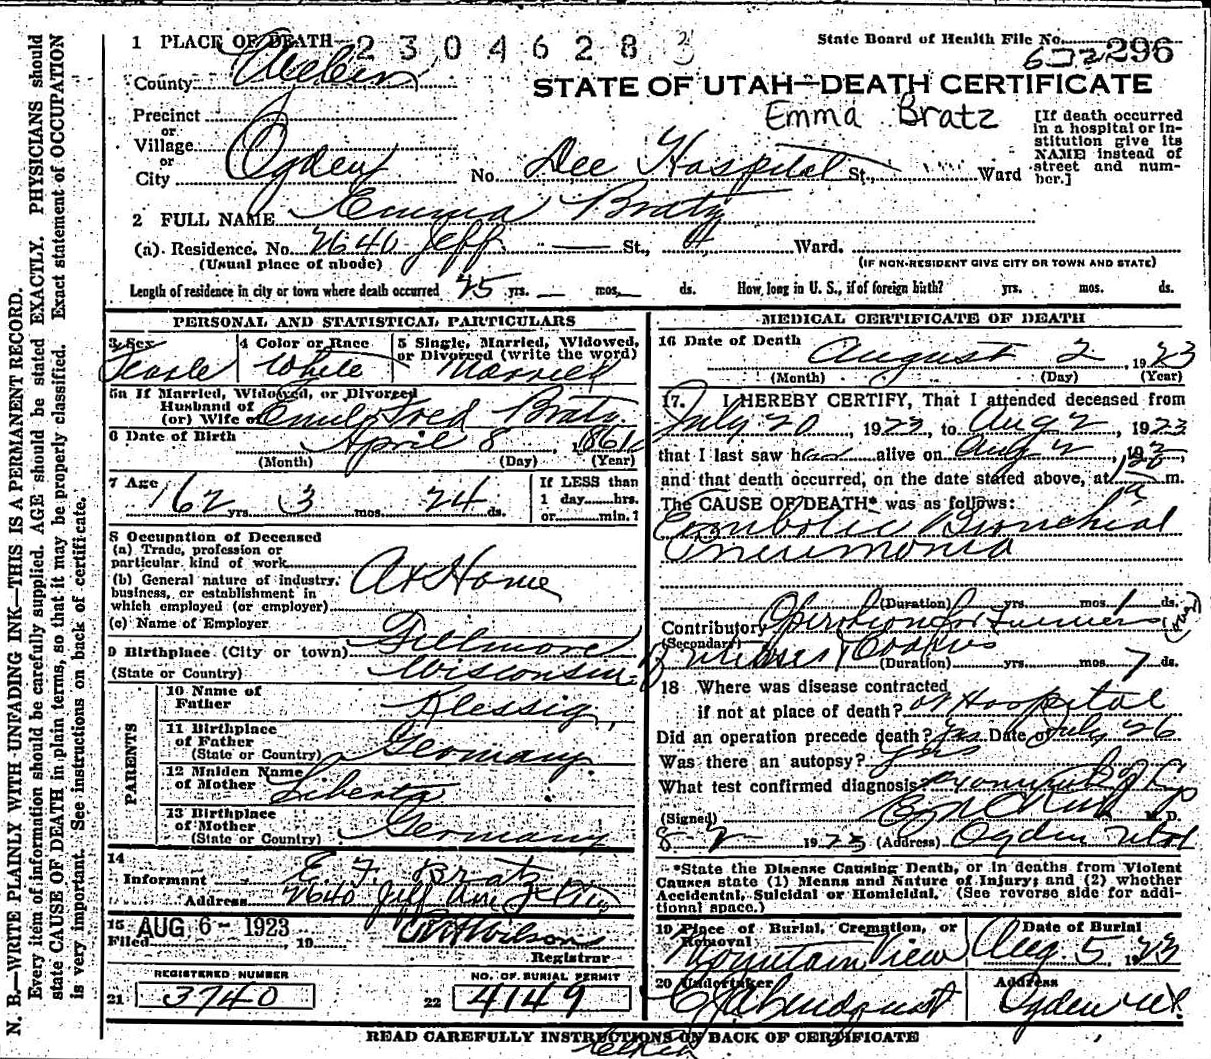 N. B.—WRITE PLAINLY WITH UNFADING INK—THIS IS A PERMANENT RECORD.
Every item of information should be carefully supplied. AGE should be stated EXACTLY. PHYSICIANS should
state CAUSE OF DEATH in plain terms, so that it may be properly classified. Exact statement of OCCUPATION
is very important. See instructions on back of certificate.
1 PLACE OF DEATH 2304628
State Board of Health File No. 296
County Weber
STATE OF UTAH—DEATH CERTIFICATE
Emma Bratz
Precinct
or
Village
or
City Ogden No. Dee Hospital St., Ward
[If death occurred
in a hospital or in-
stitution give its
NAME instead of
street and num-
ber.]
2 FULL NAME Emma Bratz
(a). Residence. No. 2640 Jeff St., Ward.
(Usual place of abode) (IF NON-RESIDENT GIVE CITY OR TOWN AND STATE)
Length of residence in city or town where death occurred yrs. — mos. — ds. How, long in U. S., if of foreign birth? yrs. mos. ds.
PERSONAL AND STATISTICAL PARTICULARS
3 Sex 4 Color or Race 5 Single, Married, Widowed,
or Divorced (write the word)
Female White Married
5a If Married, Widowed, or Divorced
Husband of
(or) Wife of Emil Fred Bratz
6 Date of Birth April 8, 1861
(Month) (Day) (Year)
7 Age 62 yrs. 3 mos. 24 ds.
If LESS than
1 day hrs.
or min.?
8 Occupation of Deceased
(a) Trade, profession or
particular kind of work
At Home
(b) General nature of industry,
business, or establishment in
which employed (or employer)
(c) Name of Employer
9 Birthplace (City or town) Fillmore
(State or Country) Wisconsin
PARENTS
10 Name of
Father Klessig
11 Birthplace
of Father
(State or Country) Germany
12 Maiden Name
of Mother Liberta
13 Birthplace
of Mother
(State or Country) Germany
14
Informant E. F. Bratz
Address 2640 Jeff Ave
15 AUG 6 - 1923
Filed , 19 Wilson
Registrar
REGISTERED NUMBER NO. OF BURIAL PERMIT
21 3740 22 4149
MEDICAL CERTIFICATE OF DEATH
16 Date of Death August 2, 1923
(Month) (Day) (Year)
17. I HEREBY CERTIFY, That I attended deceased from
July 20, 1923, to Aug 2, 1923
that I last saw h alive on Aug 2, 19
and that death occurred, on the date stated above, at m.
The CAUSE OF DEATH* was as follows:
Embolic Bronchial
Pneumonia
(Duration) yrs. mos. 1 ds.
Contributory Operation for
(Secondary)
(Duration) yrs. mos. 7 ds.
18 Where was disease contracted
if not at place of death? at Hospital
Did an operation precede death? Yes Date of July 26
Was there an autopsy? yes
What test confirmed diagnosis?
(Signed) M. D.
8-2- 1923 (Address) Ogden Utah
*State the Disease Causing Death, or in deaths from Violent
Causes state (1) Means and Nature of Injury; and (2) whether
Accidental, Suicidal or Homicidal. (See reverse side for addi-
tional space.)
19 Place of Burial, Cremation, or
Removal Date of Burial
Mountain View Aug. 5, 1923
20 Undertaker Address
Lindquist Ogden Ut.
READ CAREFULLY INSTRUCTIONS ON BACK OF CERTIFICATE